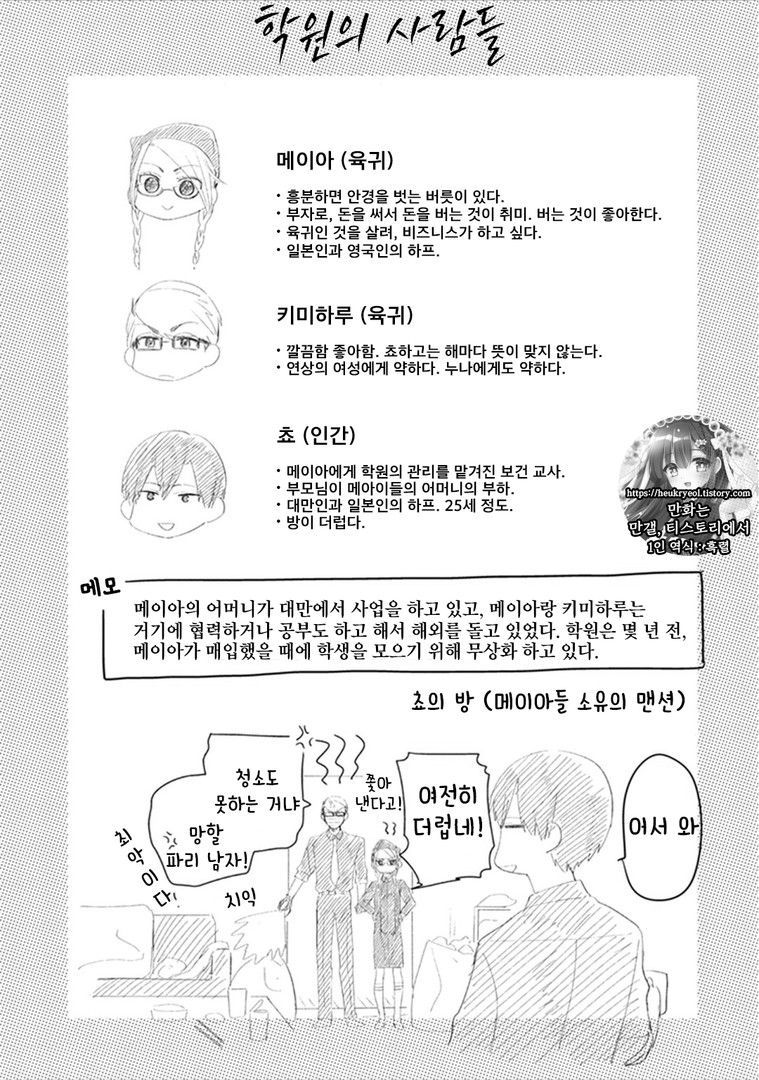 학원의 사람들
메이아 (육귀)
· 흥분하면 안경을 벗는 버릇이 있다.
· 부자로, 돈을 써서 돈을 버는 것이 취미. 버는 것이 좋아한다.
· 육귀인 것을 살려, 비즈니스가 하고 싶다.
· 일본인과 영국인의 하프.
키미하루 (육귀)
· 깔끔함 좋아함. 쵸하고는 해마다 뜻이 맞지 않는다.
· 연상의 여성에게 약하다. 누나에게도 약하다.
쵸 (인간)
· 메이아에게 학원의 관리를 맡겨진 보건 교사.
· 부모님이 메아이들의 어머니의 부하.
· 대만인과 일본인의 하프. 25세 정도.
· 방이 더럽다.
https://heukryeol.tistory.com
만화는
만갤, 티스토리에서
1인 역식 : 흑렬
메모
메이아의 어머니가 대만에서 사업을 하고 있고, 메이아랑 키미하루는
거기에 협력하거나 공부도 하고 해서 해외를 돌고 있었다. 학원은 몇 년 전,
메이아가 매입했을 때에 학생을 모으기 위해 무상화 하고 있다.
쵸의 방 (메이아들 소유의 맨션)
어서 와
여전히
더럽네!
쫓아
낸다고!
청소도
못하는 거냐
망할
파리 남자!
최악이다!
치익